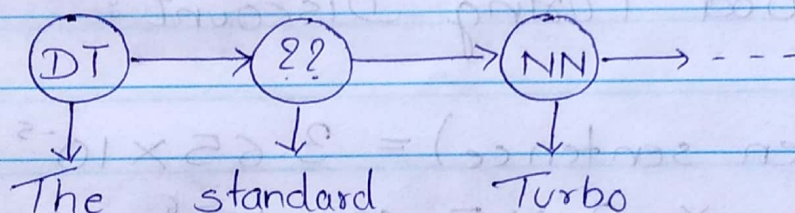 DT ?? NN
The standard Turbo